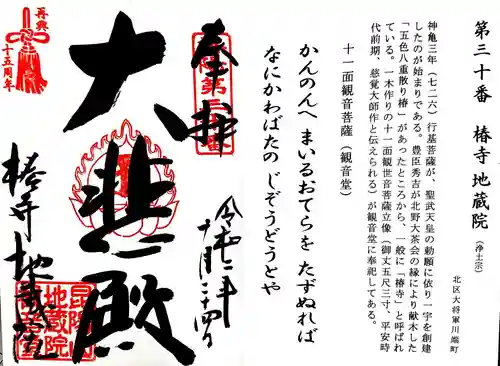 第三十番 椿寺 地蔵院 (浄土宗)
北区大将軍川端町
神亀三年(七二六)行基菩薩が、聖武天皇の勅願に依り一宇を創建
したのが始まりである。豊臣秀吉が北野大茶会の縁により献木した
「五色八重散り椿」があったところから、一般に「椿寺」と呼ばれ
ている。一木作りの十一面観世音菩薩立像(御丈五尺三寸、平安時
代前期、慈覚大師作と伝えられる)が観音堂に奉祀してある。
十一面観音菩薩(観音堂)
かんのんへ まいるおてらを たずぬれば
なにかわばたの じぞうどうとや
奉拝
令和二年
十月二十四日
大悲殿
椿寺 地蔵院
再興
十五周年
昆陽山
地蔵院